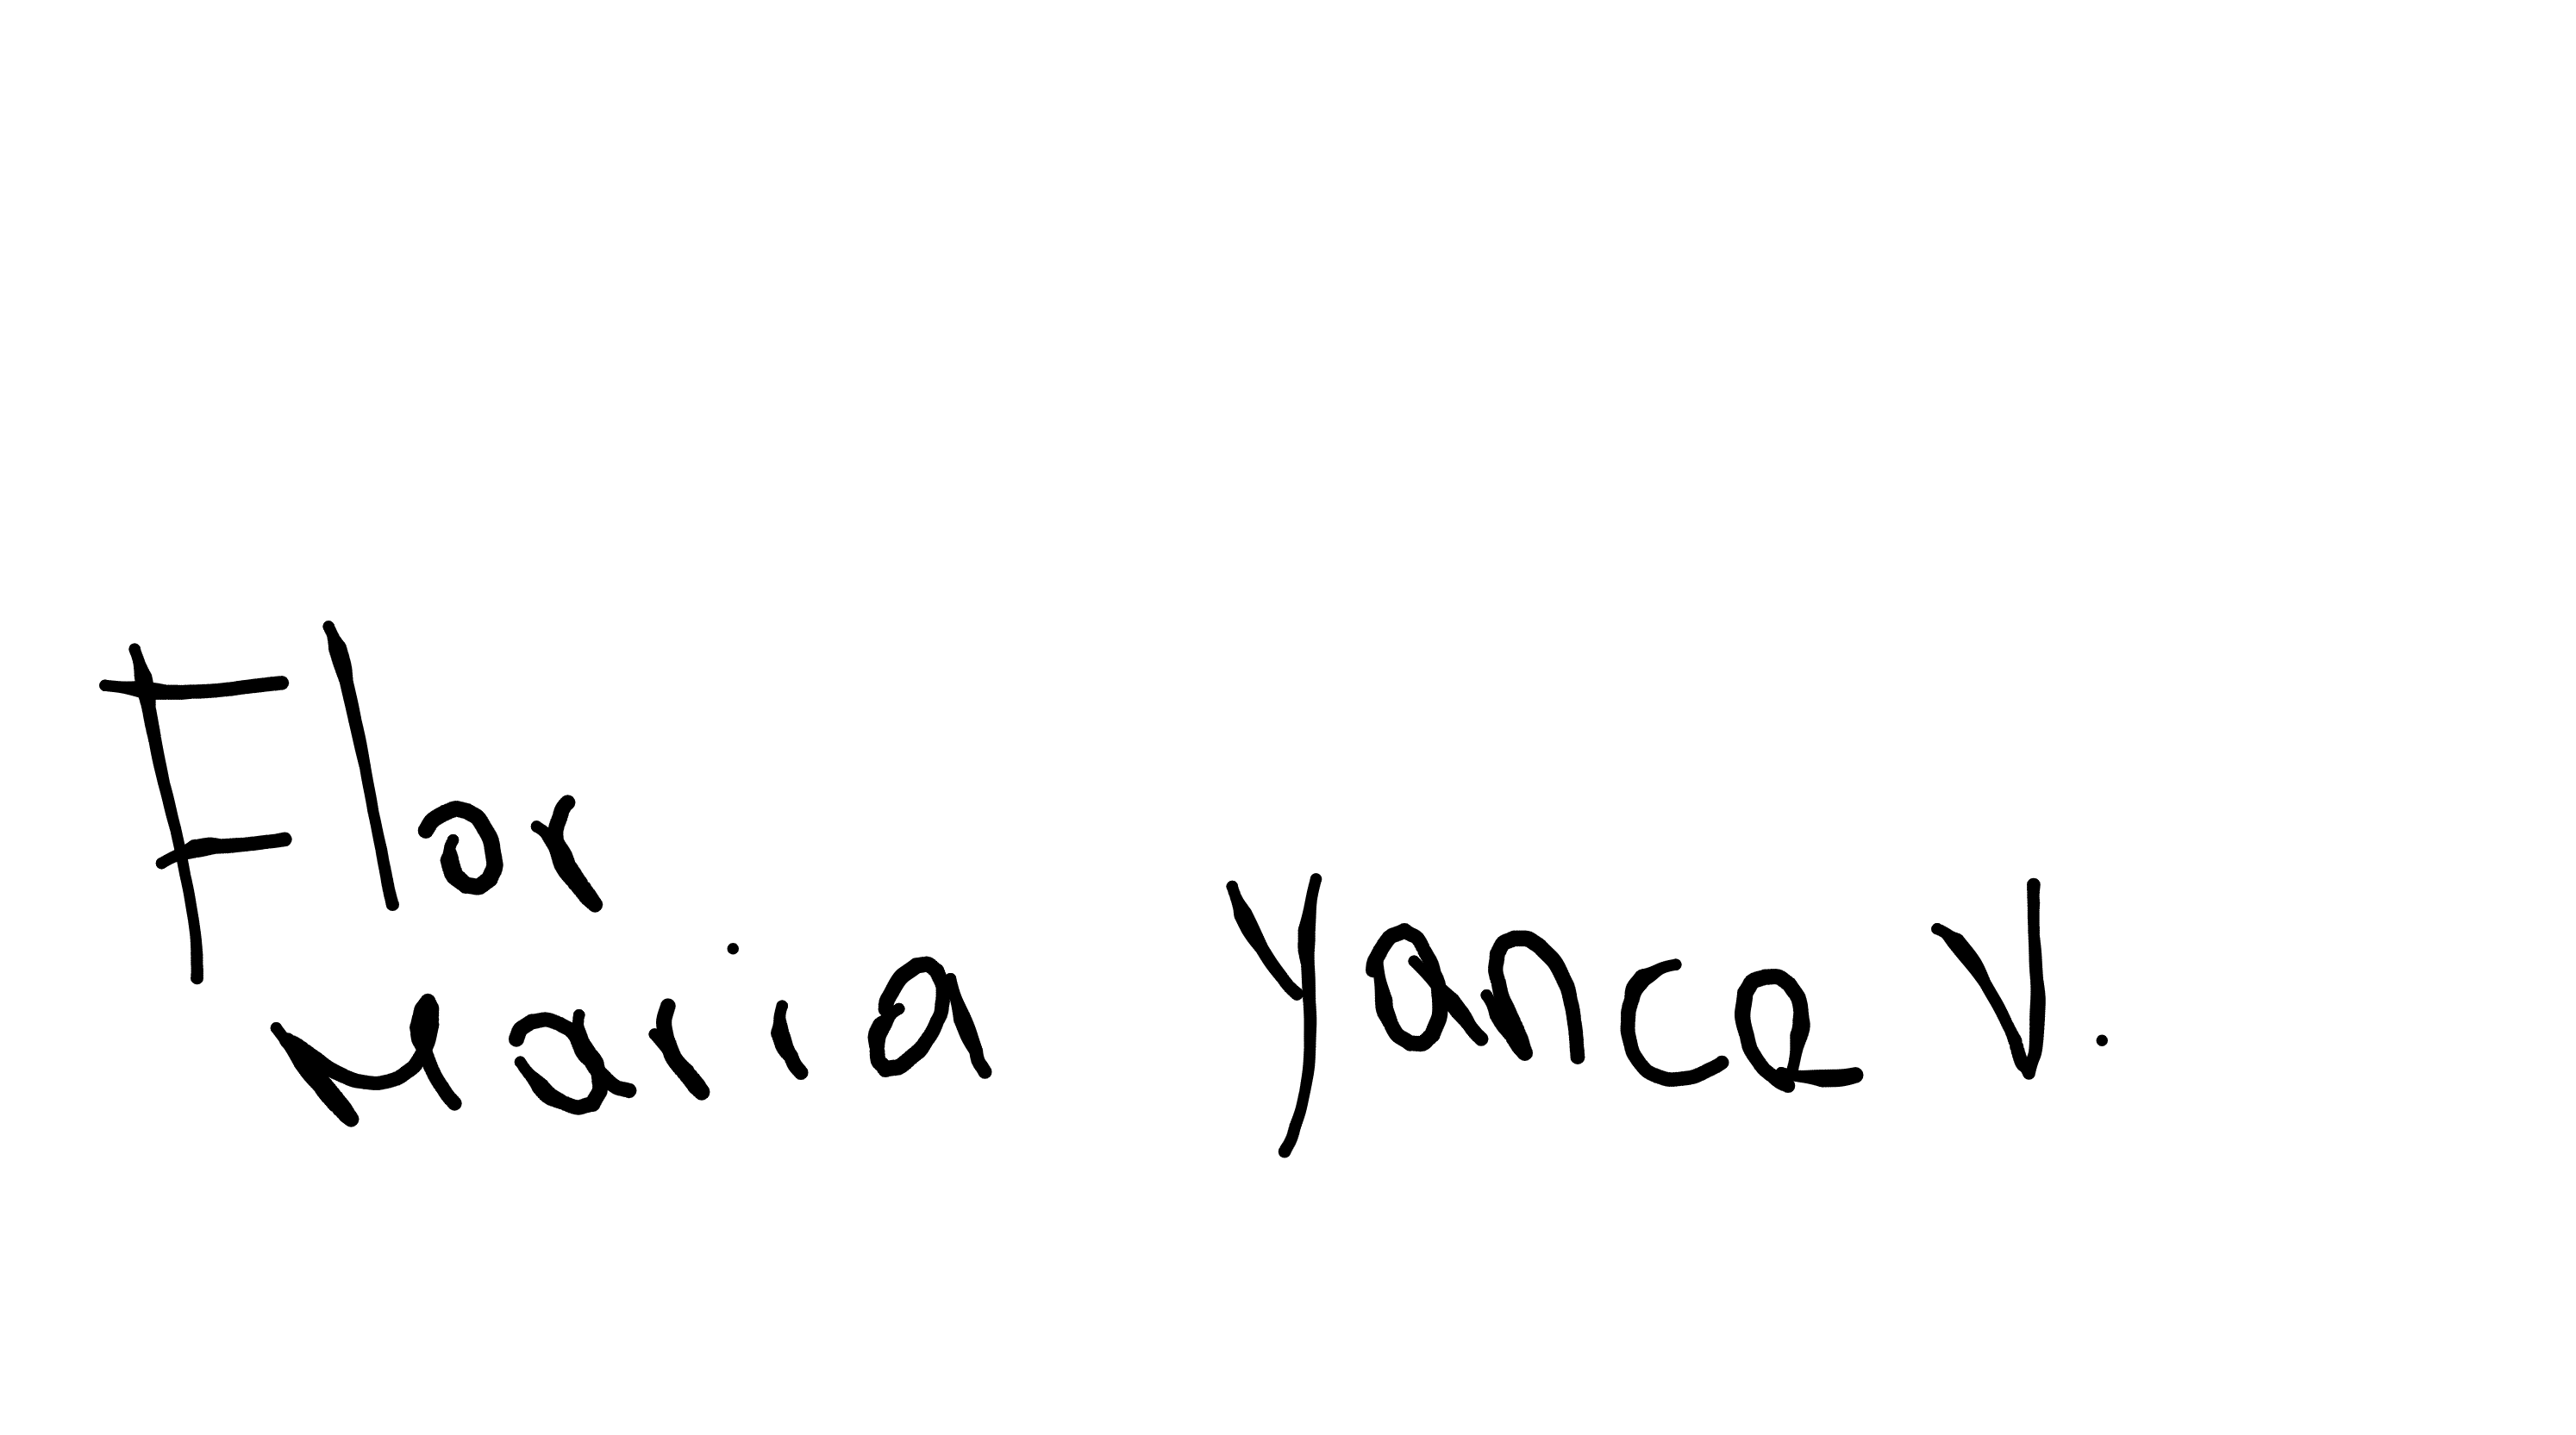 Flor
Maria Yance V.